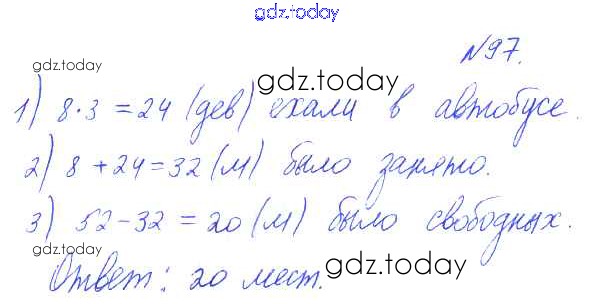 gdz.today
№97.
gdz.today
gdz.today
1) 8·3=24 (дев) ехали в автобусе.
2) 8+24=32 (м) было занято.
gdz.today
3) 52-32=20 (м) было свободных.
gdz.today
Ответ: 20 мест.
gdz.today